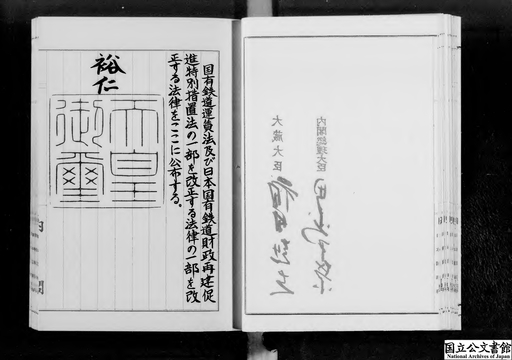 国有鉄道運賃法及び日本国有鉄道財政再建促
進特別措置法の一部を改正する法律の一部を改
正する法律をここに公布する。
裕仁
天皇
御璽
内閣
内閣総理大臣
大蔵大臣
国立公文書館
National Archives of Japan